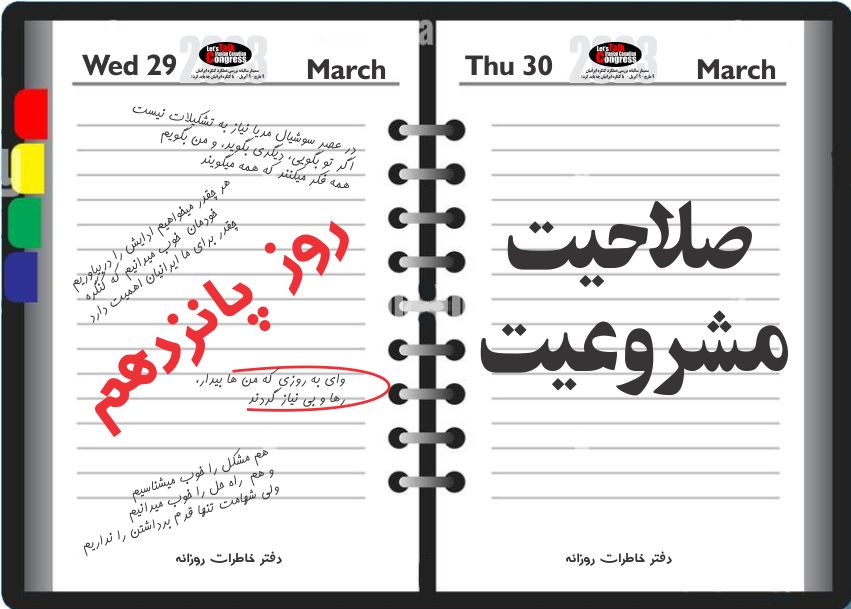 Wed 29
2023
Let's Talk
Iranian Canadian
Congress
March
در عصر سوشیال مدیا نیاز به تشکیلات نیست
اگر تو بگویی، دیگری بگوید، و من بگویم
همه فکر میکنند که همه میگویند
هر چقدر میخواهیم ادایش را دربیاوریم
خودمان خوب میدانیم که کنگره
چقدر برای ما ایرانیان اهمیت دارد
روز پانزدهم
وای به روزی که من ها بیدار،
رها و بی نیاز گردند
هم مشکل را خوب میشناسیم
و هم راه حل را خوب میدانیم
ولی شهامت تنها قدم برداشتن را نداریم
دفتر خاطرات روزانه
Thu 30
2023
Let's Talk
Iranian Canadian
Congress
March
صلاحیت
مشروعیت
دفتر خاطرات روزانه